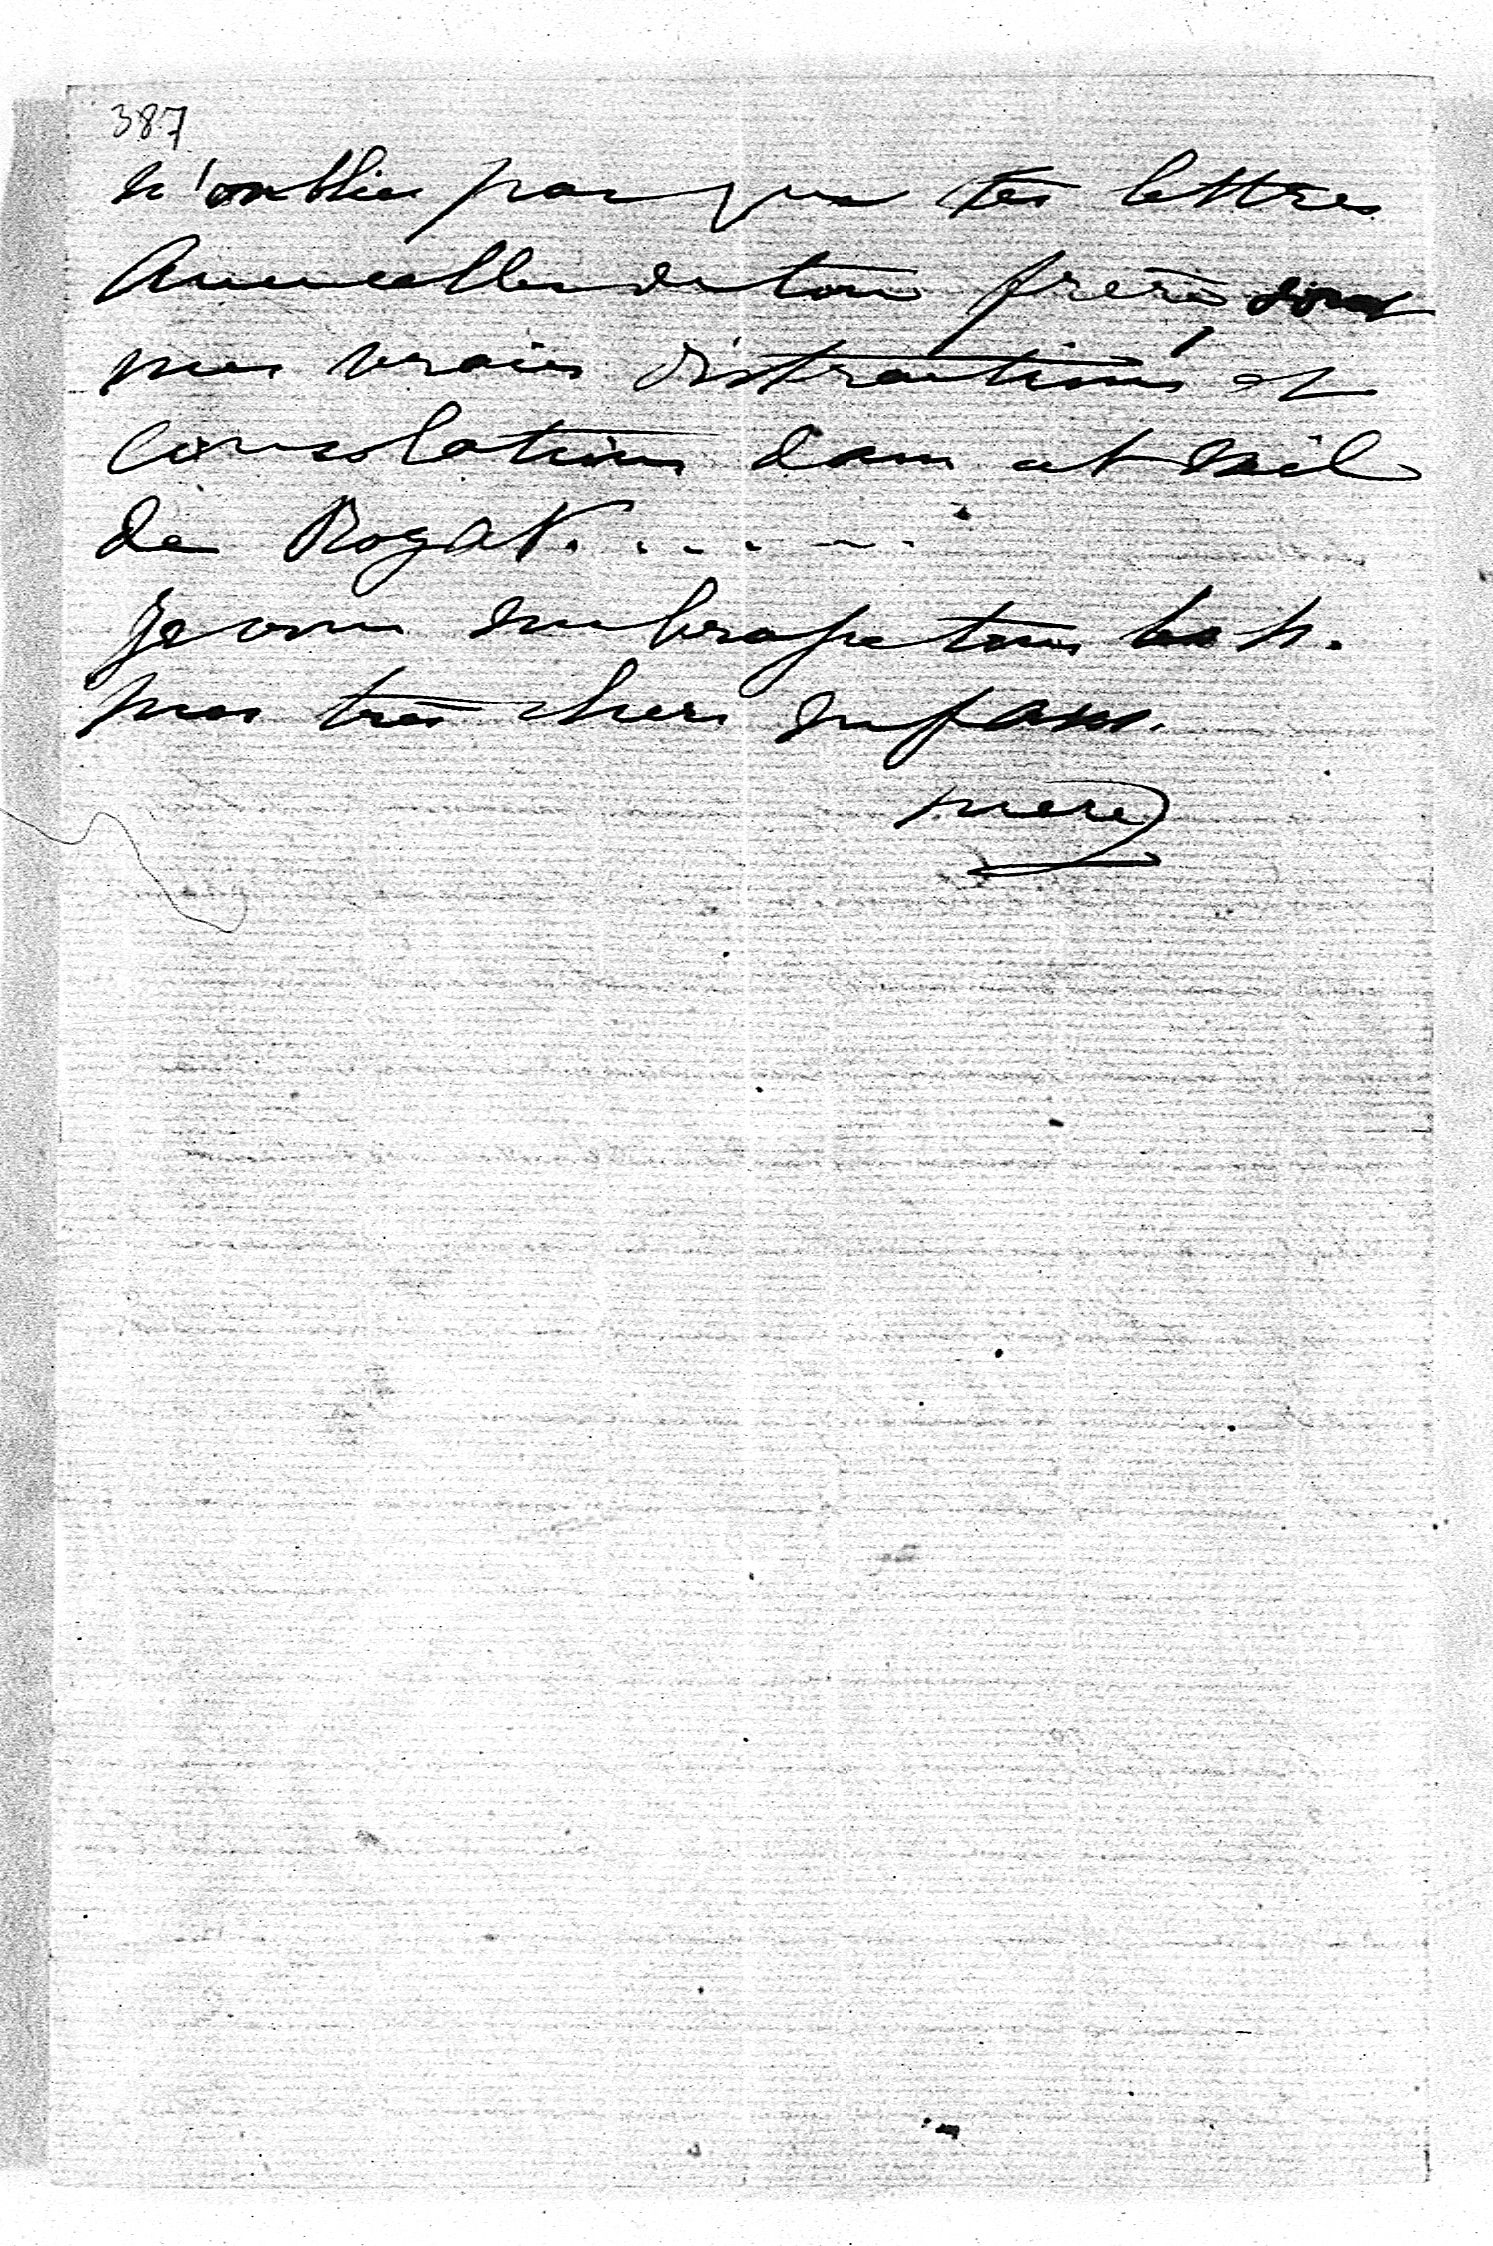 387
n'oublies pas que tes lettres
Avec celles de ton frère, sont
mes vraies distractions et
consolations dans cet exil
de Rogat. . . . . .
Je vous embrasse tous les h.
mes très chers enfans.
mère